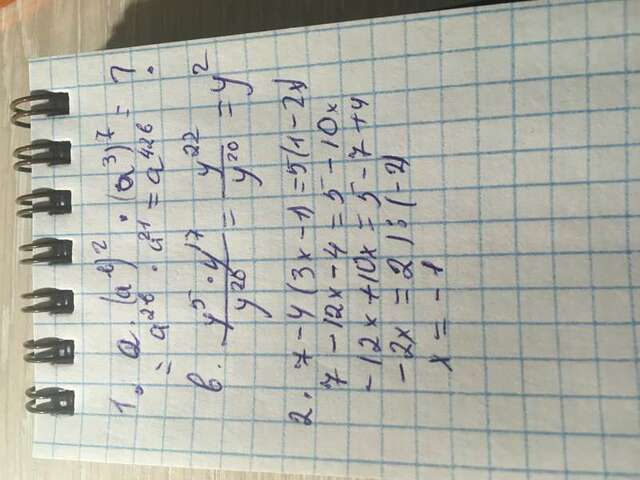 1. a. (a^b)^2 · (a^3)^7 = ?
= a^2b · a^21 = a^42b
b. y^5 · y^17 / y^20 = y^22 / y^20 = y^2
2. 7 - 4 (3x - 1) = 5 (1 - 2x)
7 - 12x - 4 = 5 - 10x
- 12x + 10x = 5 - 7 + 4
- 2x = 2 ) : (-2)
x = - 1